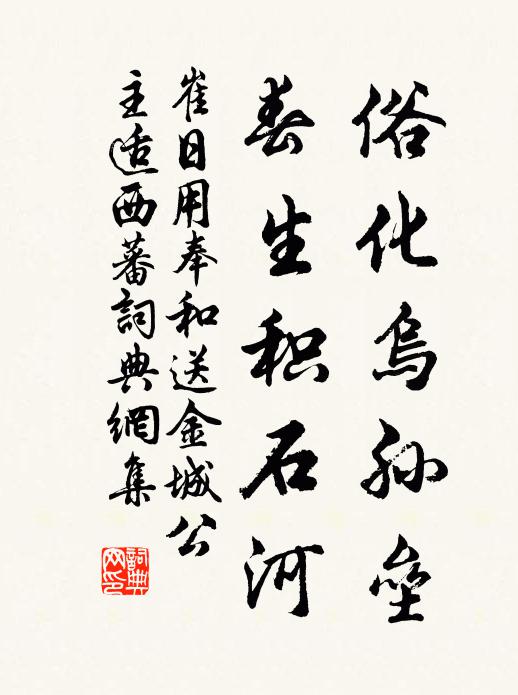 俗化乌孙垒
春生积石河
崔日用奉和送金城公
主适西蕃詞典網集
詞典网印